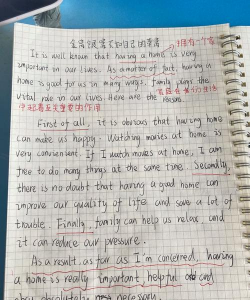 It is well know that having a home is very
important in our lives. As a matter of fact, having a
home is good for us in many ways. Family plays the
vital role in our lives. Here are the reason.
First of all, it is obvious that having home
can make us happy. Watching movies at home is
very convenient. If I watch moves at home, I am
free to do many things at the same time. Secondly,
there is no doubt that having a good home can
improve our quality of life and save a lot of
trouble. Finally, family can help us relax and
it can reduce our pressure.
As a result, as far as I'm concerned, having
a home is really important, helpful and
absolutely necessary.